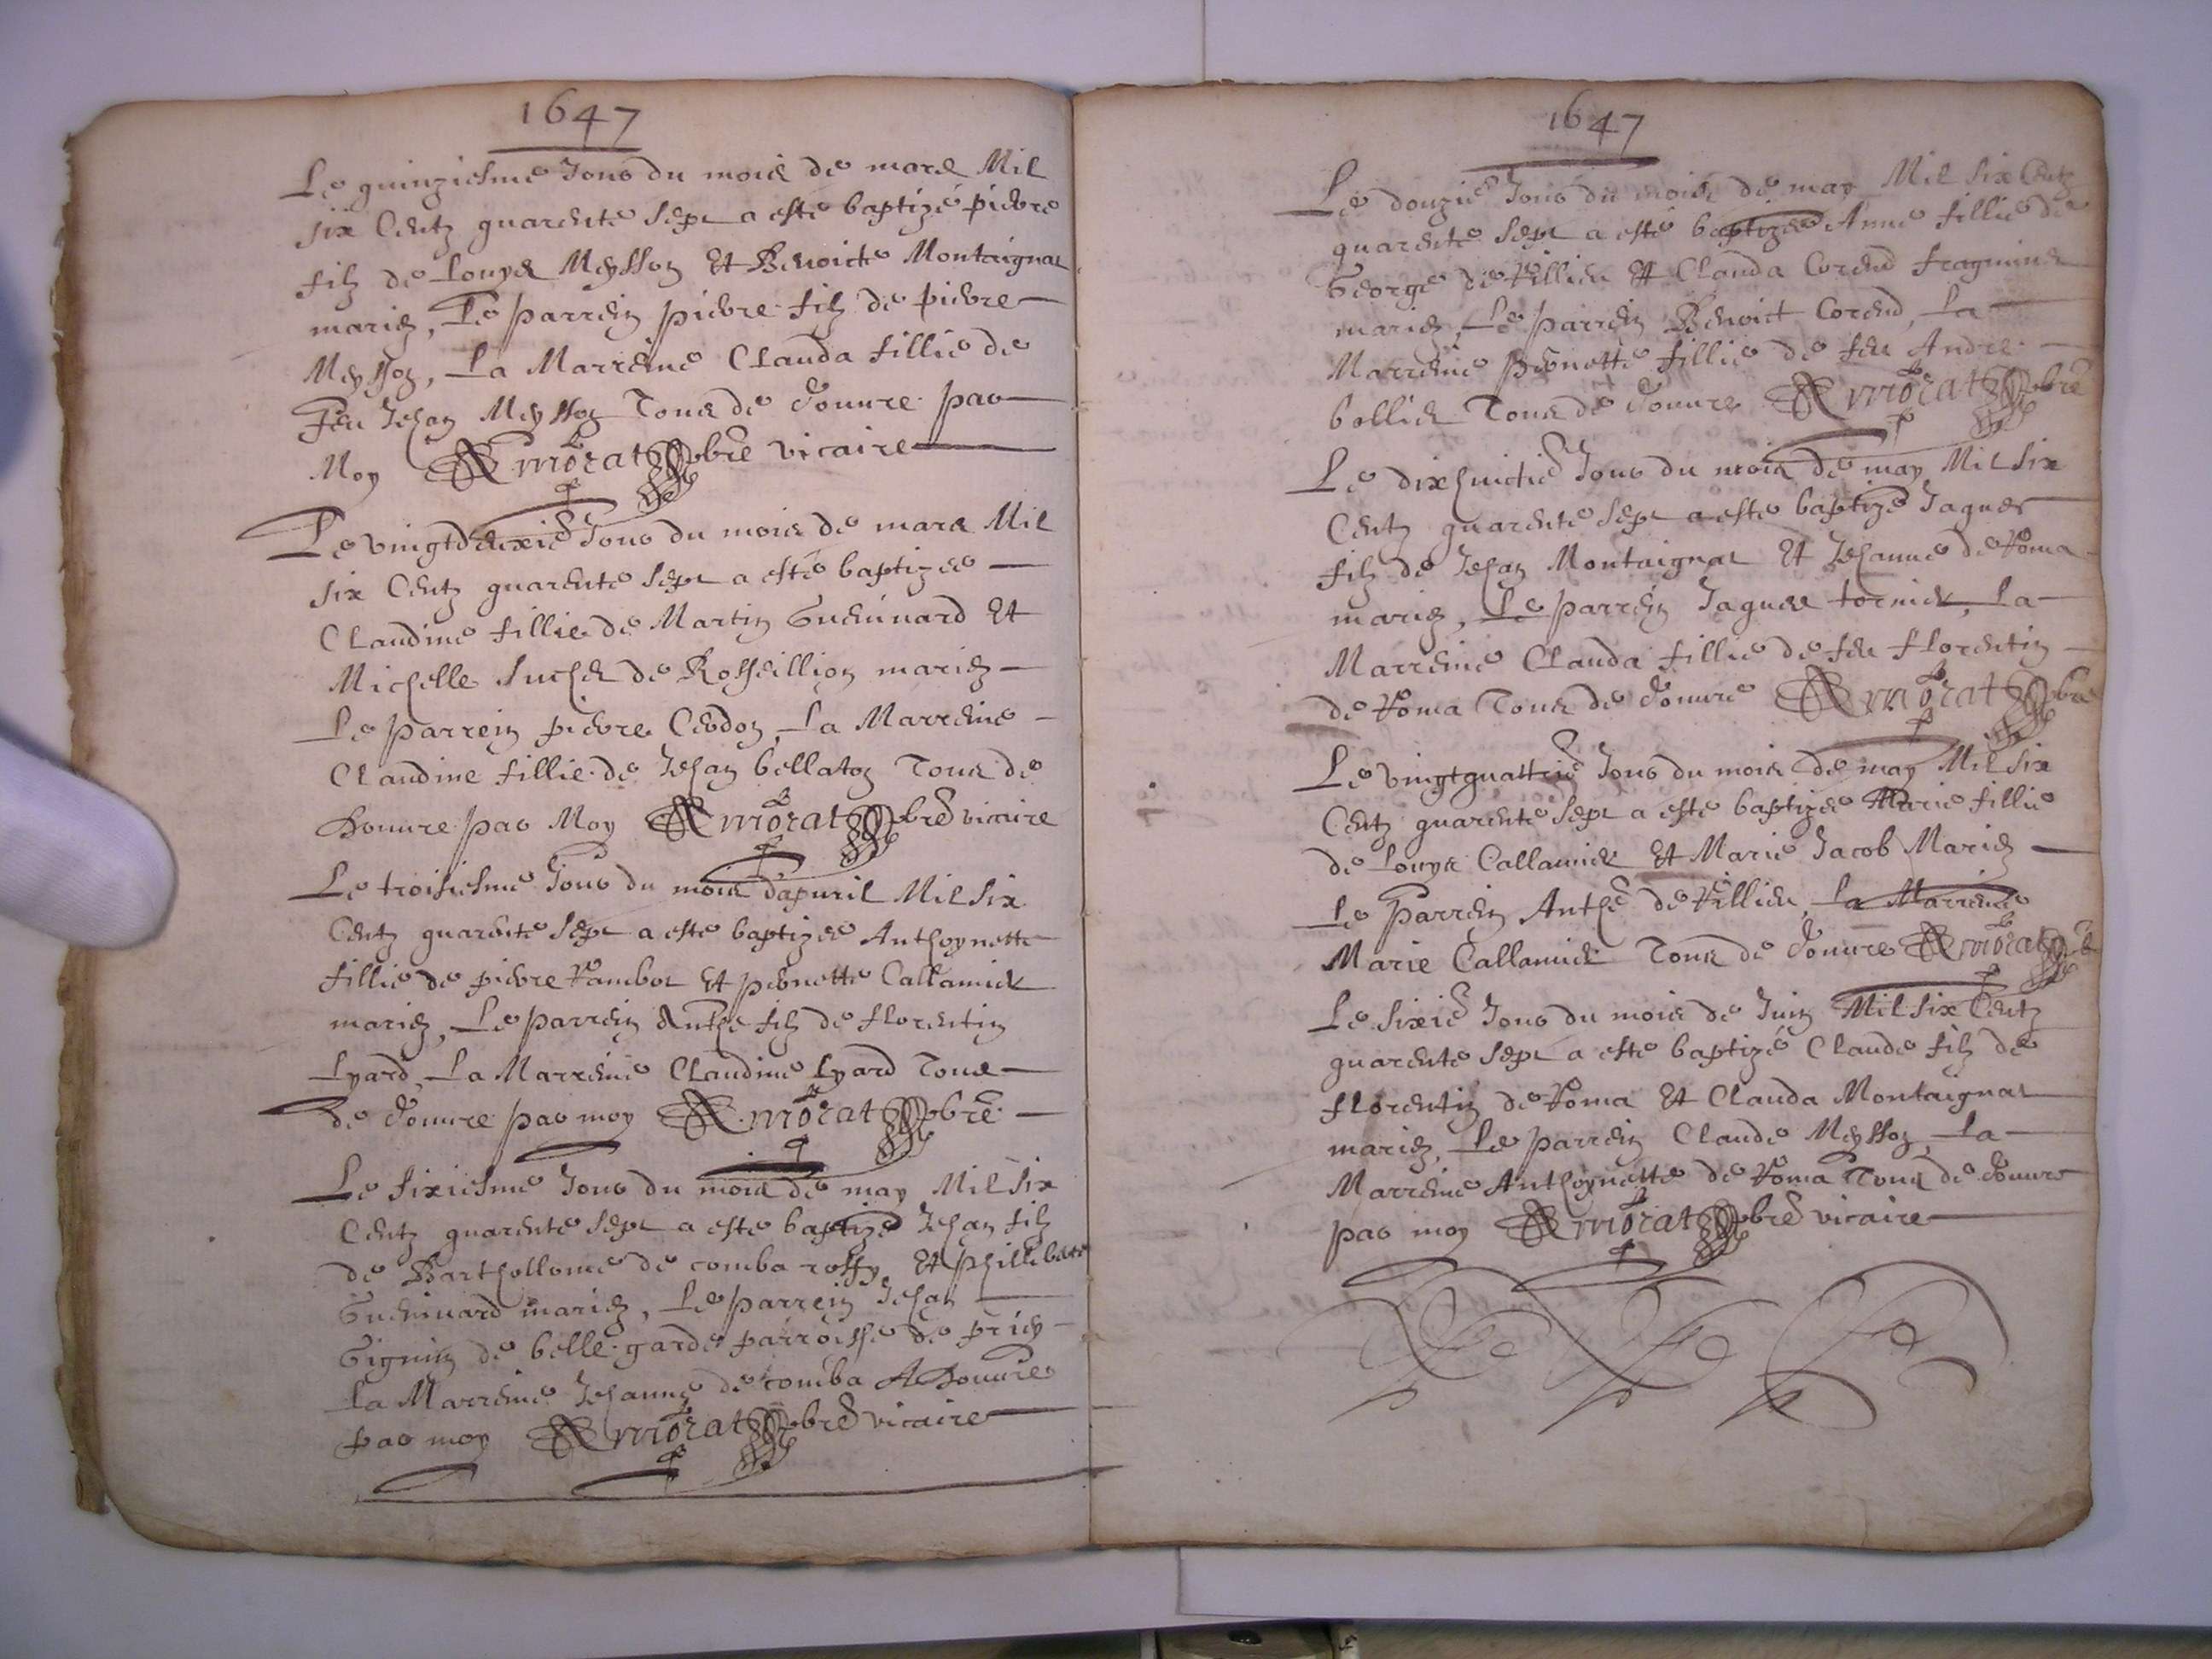 1647
Le quinziesme Jour du mois de mars Mil
six Centz quarente sept a esté baptizé pierre
filz de Louys Meysson Et Benoicte Montaignat
mariez, Le parrein pierre filz de pierre
Meysson, La Marreine Clauda fillie de
feu Jehan Meysson Tous de Douvre par
Moy Morat pbre vicaire
Le vingtdeuxie Jour du mois de mars Mil
six Centz quarente sept a esté baptizee
Claudine fillie de Martin Guennard Et
Michelle Suchet de Rosseillion mariez
Le parrein pierre Cerdon, La Marreine
Claudine fillie de Jehan bellaton Tous de
Douvre par Moy Morat pbre vicaire
Le troisiesme Jour du mois d'apvril Mil six
Centz quarente sept a esté baptizee Anthoynette
fillie de pierre Rambot Et pernette Callamier
mariez, Le parrein Anthe filz de florentin
Lyard, La Marreine Claudine Lyard Tous
de Douvre par moy Morat pbre
Le sixiesme Jour du mois de may Mil six
Centz quarente sept a esté baptizé Jehan filz
de Barthollome de comba rossy Et phillberte
Guennard mariez, Le parrein Jehan
Gignin de belle garde parroisse de priey
La Marreine Jehanne de comba A Douvre
par moy Morat pbre vicaire
1647
Le douzie Jour du mois de may Mil six Centz
quarente sept a esté baptizee Anne fillie de
George de Rillieu Et Clauda Corend
mariez, Le parrein Benoict Corend, La
Marreine pernette fillie de feu Andre
bollier Tous de Douvre Morat pbre
Le dixhuictie Jour du mois de may Mil six
Centz quarente sept a esté baptizé Jaques
filz de Jehan Montaignat Et Jehanne de Roma
mariez, Le parrein Jaques tornier, La
Marreine Clauda fillie de feu florentin
de Roma Tous de Douvre Morat pbre
Le vingtquattrie Jour du mois de may Mil six
Centz quarente sept a esté baptizee Marie fillie
de Louys Callamier Et Marie Jacob Mariez
Le Parrein Anthe de Rillieu, La Marreine
Marie Callamier Tous de Douvre Morat
Le sixie Jour du mois de Juin Mil six Centz
quarente sept a esté baptizé Claude filz de
florentin de Roma Et Clauda Montaignat
mariez, Le parrein Claude Meysson, La
Marreine Anthoynette de Roma Tous de Douvre
par moy Morat pbre vicaire